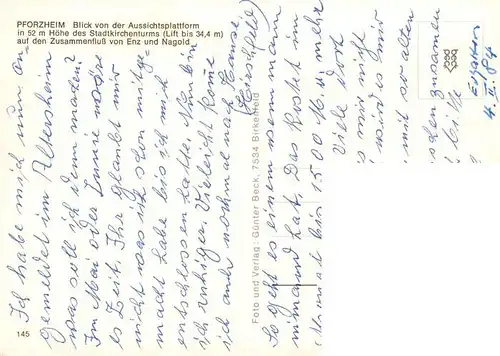 PFORZHEIM Blick von der Aussichtsplattform
in 52 m Höhe des Stadtkirchenturms (Lift bis 34,4 m)
auf den Zusammenfluß von Enz und Nagold
Ich habe mich nun an-
gemeldet im Altersheim
was soll ich denn machen?
Im Mai oder Junie
es Zeit. Ihr glaubt mir
nicht was ich schon mitge-
macht habe bis ich mich
entschlossen hatte. Nun bin
ich ruhiger. Vieleicht komme
ich auch nochmal nach Hause
(Hirschfeld)
So geht es einem wenn man
nimand hat. Das kostet im
Monat bis 1500 M. u. mehr
Viele
s mir nicht
wird es mir
mit so alten
zusamen
bitte
4. II. 84
Foto und Verlag: Günter Beck, 7534 Birkenfeld
145